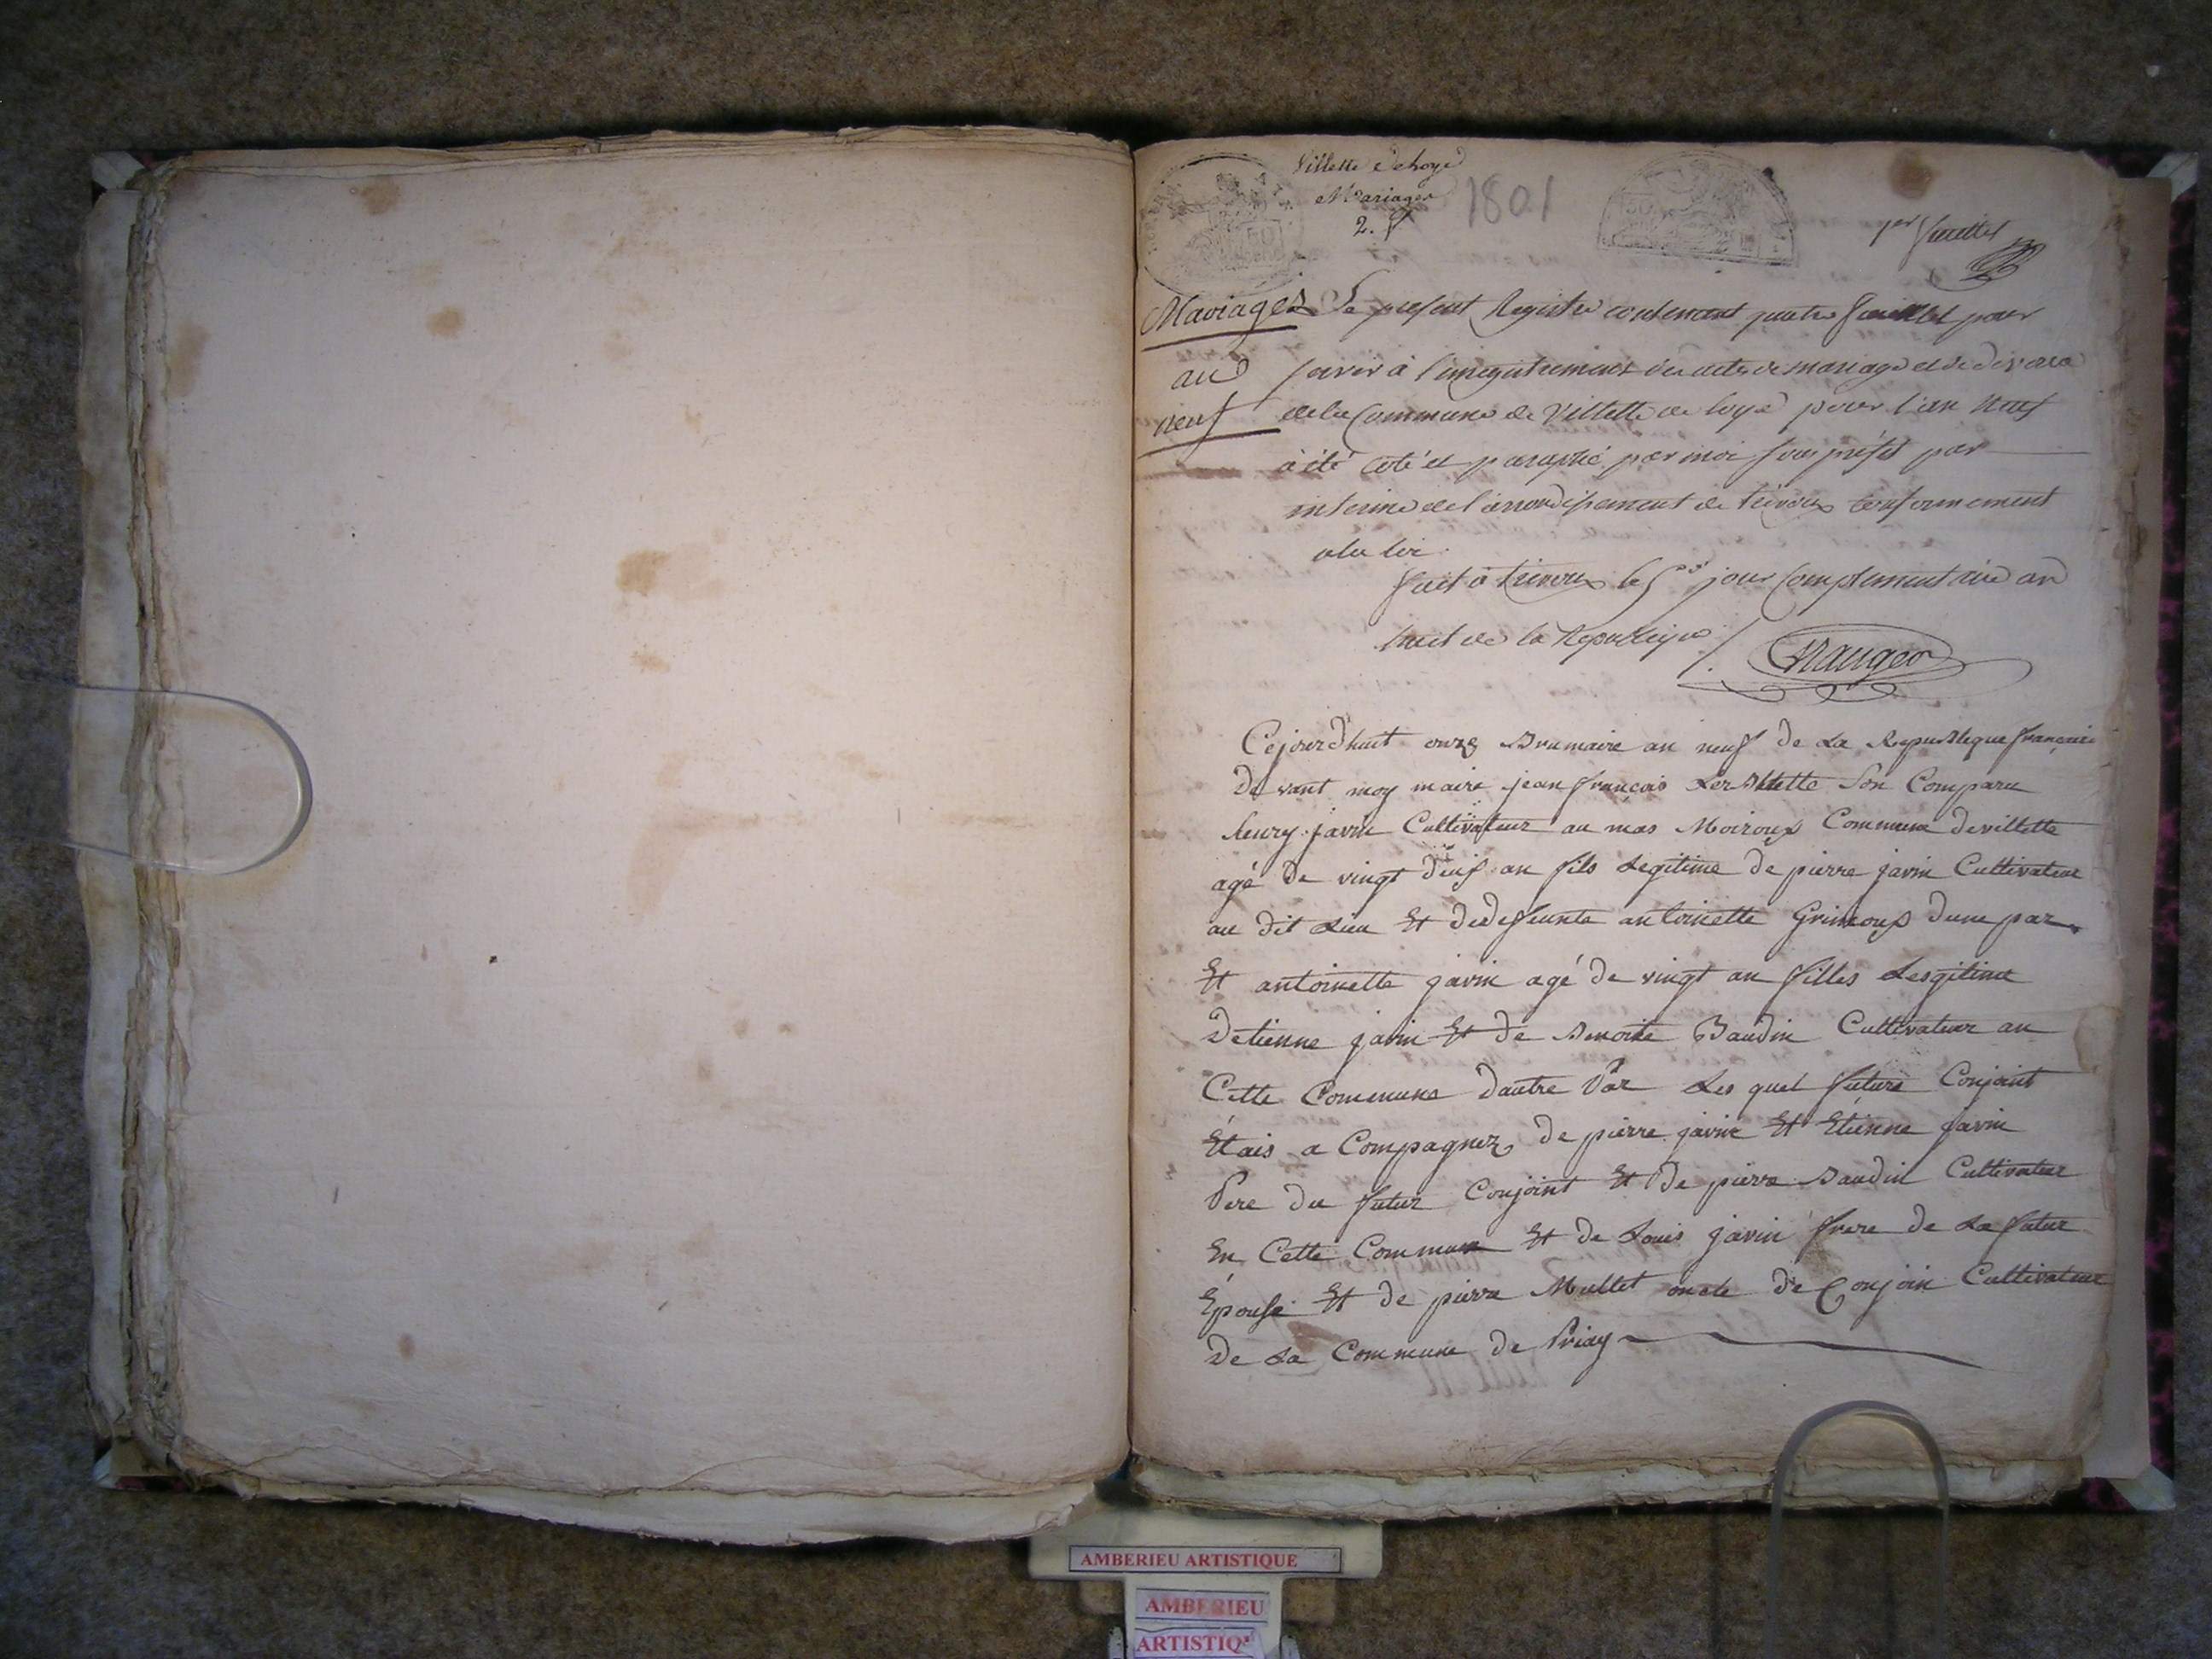 Villette de Loye
Mariages
2.
1801
1er feuillet
Mariages
an
neuf
Le present Registre contenant quatre feuillet pour
servir à l'enregistrement des actes de mariage et de divorce
de la Commune de Villette de loye pour l'an neuf
à été coté et paraphé par moi sous préfet par
interim de l'arrondissement de trevoux conformement
a la loi.
fait à trevoux le 5eme jour Complementaire an
huit de la Republique
Cejourdhuit onze Brumaire an neuf de La Republique française
De vant moy maire jean françois Son Comparu
henry javin Cultivateur au mas Moiroux Commune devillette
agé De vingt an fils Legitime De pierre javin Cultivateur
au dit Lieu Et dedefeunte antoinette dune par
Et antoinette javin agé de vingt an filles Lesgitime
Detienne javin Et De Benoite Baudin Cultivateur au
Cette Commune Dautre Par Les quel future Conjoint
Étais a Compagnez De pierre javin Et Étienne javin
Pere Du futur Conjoint Et De pierre Baudin Cultivateur
En Cette Commune Et de Louis javin frere De La futur
Épouse Et de pierre Mullet oncle De Conjoin Cultivateur
De La Commune De Priay
AMBERIEU ARTISTIQUE
AMBERIEU
ARTISTIQ